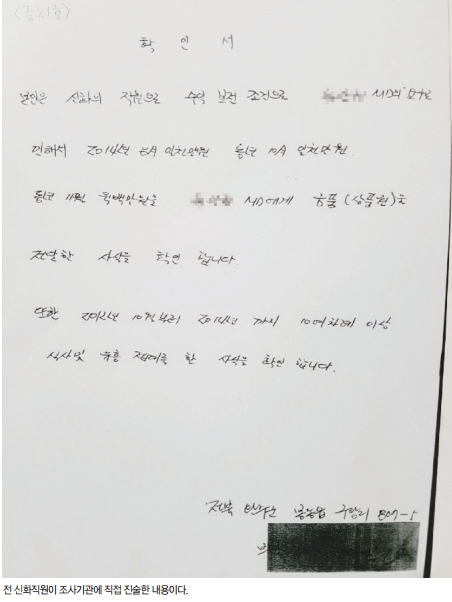 확 인 서
본인은 신화의 직원으로 수익 보전 조건으로 MD의 요구로
인해서 2014년 일천만원 동년 10月 일천만원
동년 11월 육백만원을 MD에게 금품(상품권)을
전달한 사실을 확인 합니다.
또한 2012년 10월부터 2014년 까지 10여차례 이상
식사및 유흥 접대를 한 사실을 확인 합니다.
전북 완주군 봉동읍 구암리 807-5
전 신화직원이 조사기관에 직접 진술한 내용이다.